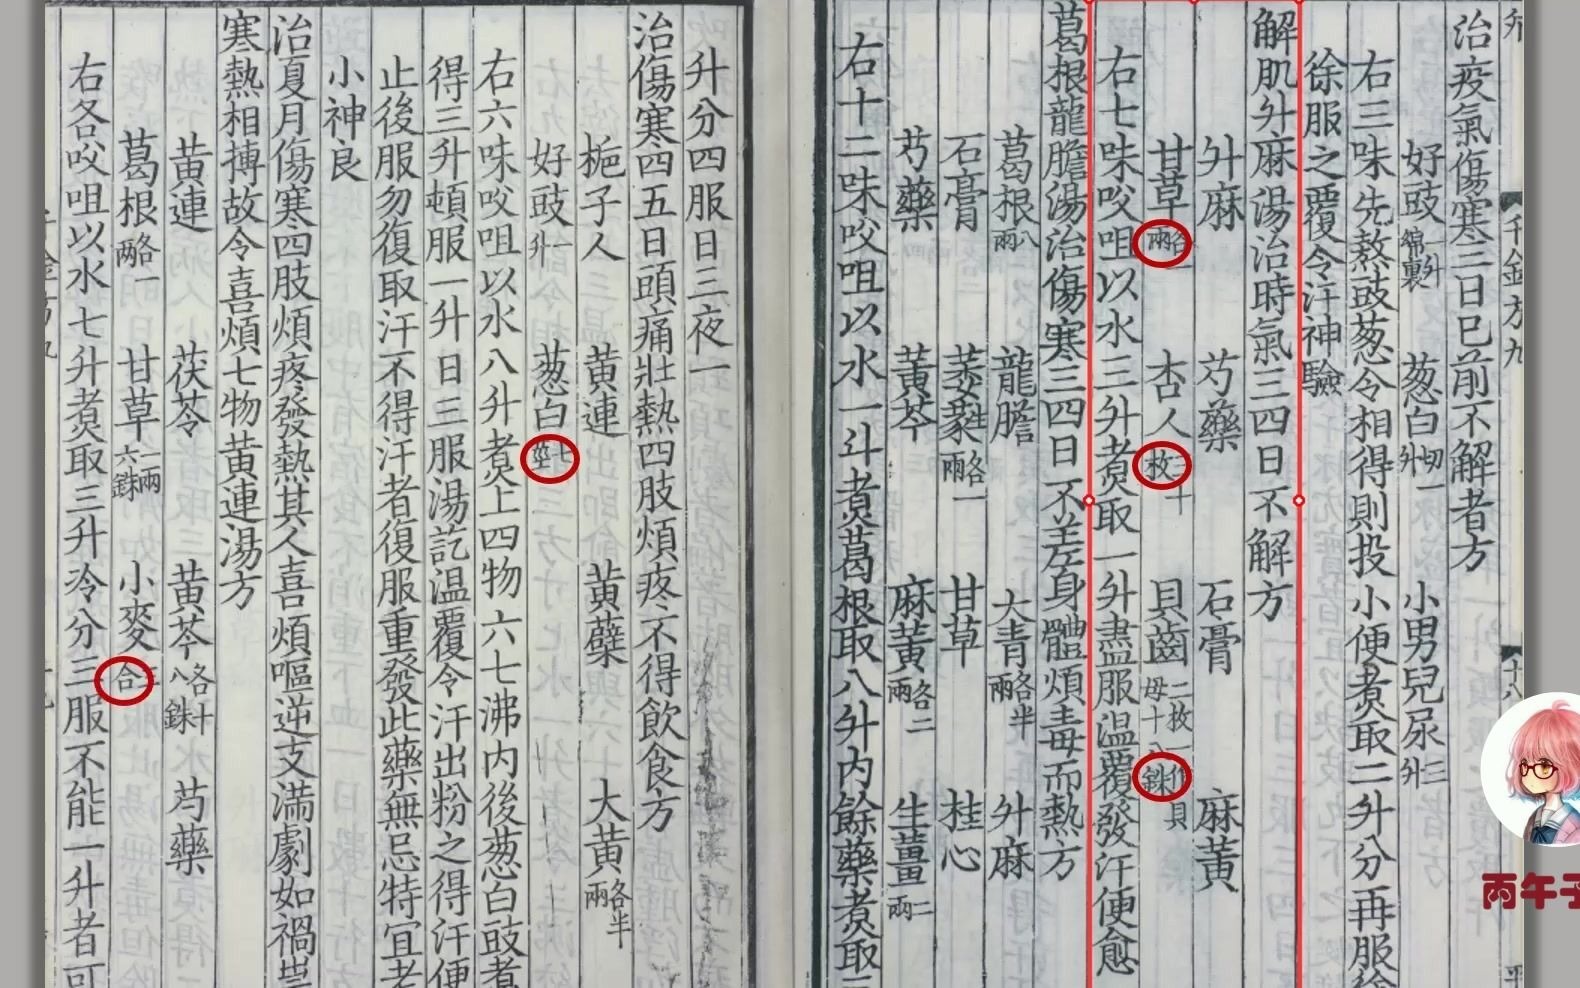 治疫氣傷寒三日已前不解者方
好豉一升綿裹 葱白切一升 小男兒尿三升
右三味先熬豉葱令相得則投小便煮取二升分再服徐
徐服之覆令汗神驗
解肌升麻湯治時氣三四日不解方
升麻 芍藥 石膏 麻黃
甘草各一兩 杏人三十枚 貝齒二枚一作貝母十八銖
右七味㕮咀以水三升煮取一升盡服温覆發汗便愈
葛根龍膽湯治傷寒三四日不差身體煩毒而熱方
葛根八兩 龍膽 大青各半兩 升麻
石膏 萎蕤各一兩 甘草 桂心
芍藥 黃芩 麻黃各二兩 生薑二兩
右十二味㕮咀以水一斗煮葛根取八升内餘藥煮取三
升分四服日三夜一
治傷寒四五日頭痛壯熱四肢煩疼不得飲食方
梔子人 黃連 黃蘗 大黃各半兩
好豉一升 葱白七莖
右六味㕮咀以水八升煮上四物六七沸内後葱白豉煮
得三升頓服一升日三服湯訖温覆令汗出粉之得汗便
止後服勿復取汗不得汗者復服重發此藥無忌特宜老
小神良
治夏月傷寒四肢煩疼發熱其人喜煩嘔逆支滿劇如禍祟
寒熱相搏故令喜煩七物黃連湯方
黃連 茯苓 黃芩各十八銖 芍藥
葛根各一兩 甘草一兩六銖 小麥三合
右各㕮咀以水七升煮取三升冷分三服不能一升者可
千金方九
十八
丙午子